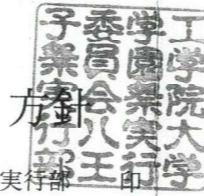 工学院大学
学園祭実行
委員会八王
子業実行部
方針
実行部 印